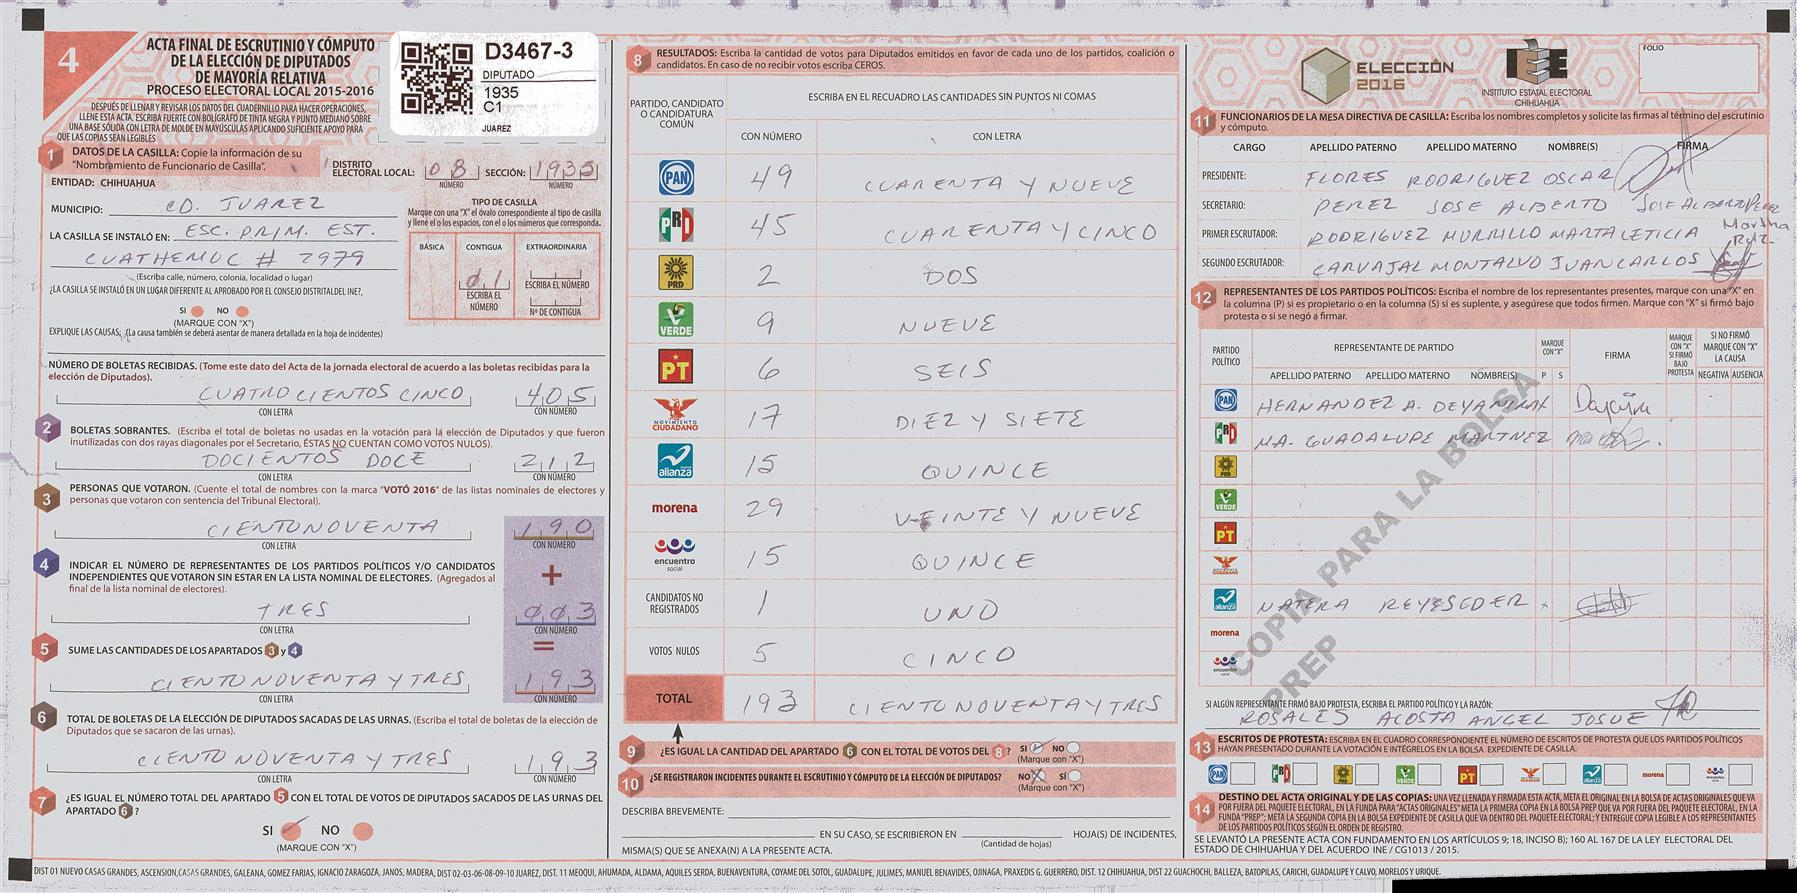 4
ACTA FINAL DE ESCRUTINIO Y CÓMPUTO
DE LA ELECCIÓN DE DIPUTADOS
DE MAYORÍA RELATIVA
PROCESO ELECTORAL LOCAL 2015-2016
DESPUÉS DE LLENAR Y REVISAR LOS DATOS DEL CUADERNILLO PARA HACER OPERACIONES,
LLENE ESTA ACTA. ESCRIBA FUERTE CON BOLÍGRAFO DE TINTA NEGRA Y PUNTO MEDIANO SOBRE
UNA BASE SÓLIDA CON LETRA DE MOLDE EN MAYÚSCULAS APLICANDO SUFICIENTE APOYO PARA
QUE LAS COPIAS SEAN LEGIBLES
D3467-3
DIPUTADO
1935
C1
JUAREZ
1 DATOS DE LA CASILLA: Copie la información de su
"Nombramiento de Funcionario de Casilla".
DISTRITO
ELECTORAL LOCAL: 08 SECCIÓN: 1935
NÚMERO NÚMERO
ENTIDAD: CHIHUAHUA
MUNICIPIO: CD. JUAREZ
LA CASILLA SE INSTALÓ EN: ESC. PRIM. EST.
CUATHEMOC # 7979
(Escriba calle, número, colonia, localidad o lugar)
TIPO DE CASILLA
Marque con una "X" el óvalo correspondiente al tipo de casilla
y llene el o los espacios, con el o los números que corresponda.
BÁSICA CONTIGUA EXTRAORDINARIA
01
ESCRIBA EL NÚMERO
ESCRIBA EL NÚMERO
Nº DE CONTIGUA
¿LA CASILLA SE INSTALÓ EN UN LUGAR DIFERENTE AL APROBADO POR EL CONSEJO DISTRITAL DEL INE?,
SI NO
(MARQUE CON "X")
EXPLIQUE LAS CAUSAS: (La causa también se deberá asentar de manera detallada en la hoja de incidentes)
NÚMERO DE BOLETAS RECIBIDAS. (Tome este dato del Acta de la jornada electoral de acuerdo a las boletas recibidas para la
elección de Diputados).
CUATRO CIENTOS CINCO 405
CON LETRA CON NÚMERO
2 BOLETAS SOBRANTES. (Escriba el total de boletas no usadas en la votación para la elección de Diputados y que fueron
inutilizadas con dos rayas diagonales por el Secretario, ÉSTAS NO CUENTAN COMO VOTOS NULOS).
DOCIENTOS DOCE 212
CON LETRA CON NÚMERO
3 PERSONAS QUE VOTARON. (Cuente el total de nombres con la marca "VOTÓ 2016" de las listas nominales de electores y
personas que votaron con sentencia del Tribunal Electoral).
CIENTO NOVENTA 190
CON LETRA CON NÚMERO
+
4 INDICAR EL NÚMERO DE REPRESENTANTES DE LOS PARTIDOS POLÍTICOS Y/O CANDIDATOS
INDEPENDIENTES QUE VOTARON SIN ESTAR EN LA LISTA NOMINAL DE ELECTORES. (Agregados al
final de la lista nominal de electores).
TRES 003
CON LETRA CON NÚMERO
=
5 SUME LAS CANTIDADES DE LOS APARTADOS 3 y 4
CIENTO NOVENTA Y TRES 193
CON LETRA CON NÚMERO
6 TOTAL DE BOLETAS DE LA ELECCIÓN DE DIPUTADOS SACADAS DE LAS URNAS. (Escriba el total de boletas de la elección de
Diputados que se sacaron de las urnas).
CIENTO NOVENTA Y TRES 193
CON LETRA CON NÚMERO
7 ¿ES IGUAL EL NÚMERO TOTAL DEL APARTADO 5 CON EL TOTAL DE VOTOS DE DIPUTADOS SACADOS DE LAS URNAS DEL
APARTADO 6?
SI NO
(MARQUE CON "X")
8 RESULTADOS: Escriba la cantidad de votos para Diputados emitidos en favor de cada uno de los partidos, coalición o
candidatos. En caso de no recibir votos escriba CEROS.
PARTIDO, CANDIDATO
O CANDIDATURA
COMÚN
ESCRIBA EN EL RECUADRO LAS CANTIDADES SIN PUNTOS NI COMAS
CON NÚMERO CON LETRA
PAN 49 CUARENTA Y NUEVE
PRI 45 CUARENTA Y CINCO
PRD 2 DOS
VERDE 9 NUEVE
PT 6 SEIS
MOVIMIENTO CIUDADANO 17 DIEZ Y SIETE
alianza 15 QUINCE
morena 29 VEINTE Y NUEVE
encuentro social 15 QUINCE
CANDIDATOS NO REGISTRADOS 1 UNO
VOTOS NULOS 5 CINCO
TOTAL 193 CIENTO NOVENTA Y TRES
9 ¿ES IGUAL LA CANTIDAD DEL APARTADO 6 CON EL TOTAL DE VOTOS DEL 8? SI NO
(Marque con "X")
10 ¿SE REGISTRARON INCIDENTES DURANTE EL ESCRUTINIO Y CÓMPUTO DE LA ELECCIÓN DE DIPUTADOS? NO SÍ
(Marque con "X")
DESCRIBA BREVEMENTE:
EN SU CASO, SE ESCRIBIERON EN HOJA(S) DE INCIDENTES,
(Cantidad de hojas)
MISMA(S) QUE SE ANEXA(N) A LA PRESENTE ACTA.
ELECCIÓN
2016
IEE
INSTITUTO ESTATAL ELECTORAL
CHIHUAHUA
FOLIO
11 FUNCIONARIOS DE LA MESA DIRECTIVA DE CASILLA: Escriba los nombres completos y solicite las firmas al término del escrutinio
y cómputo.
CARGO APELLIDO PATERNO APELLIDO MATERNO NOMBRE(S) FIRMA
PRESIDENTE: FLORES RODRIGUEZ OSCAR
SECRETARIO: PEREZ JOSE ALBERTO JOSE ALBERTO PEREZ
PRIMER ESCRUTADOR: RODRIGUEZ MURRILLO MARTA LETICIA Martha Rdz.
SEGUNDO ESCRUTADOR: CARVAJAL MONTALVO JUAN CARLOS
12 REPRESENTANTES DE LOS PARTIDOS POLÍTICOS: Escriba el nombre de los representantes presentes, marque con una "X" en
la columna (P) si es propietario o en la columna (S) si es suplente, y asegúrese que todos firmen. Marque con "X" si firmó bajo
protesta o si se negó a firmar.
PARTIDO POLÍTICO REPRESENTANTE DE PARTIDO MARQUE CON "X" FIRMA MARQUE CON "X" SI FIRMÓ BAJO PROTESTA SI NO FIRMÓ MARQUE CON "X" LA CAUSA
APELLIDO PATERNO APELLIDO MATERNO NOMBRE(S) P S NEGATIVA AUSENCIA
PAN HERNANDEZ A. DEYANIRA X
PRI MA. GUADALUPE MARTNEZ
PRD
VERDE
PT
MOVIMIENTO CIUDADANO
alianza NATERA REYES EDER X
morena
encuentro social
COPIA PARA LA BOLSA
PREP
SI ALGÚN REPRESENTANTE FIRMÓ BAJO PROTESTA, ESCRIBA EL PARTIDO POLÍTICO Y LA RAZÓN:
ROSALES ACOSTA ANGEL JOSUE
13 ESCRITOS DE PROTESTA: ESCRIBA EN EL CUADRO CORRESPONDIENTE EL NÚMERO DE ESCRITOS DE PROTESTA QUE LOS PARTIDOS POLÍTICOS
HAYAN PRESENTADO DURANTE LA VOTACIÓN E INTÉGRELOS EN LA BOLSA EXPEDIENTE DE CASILLA.
PAN PRI PRD VERDE PT MOVIMIENTO CIUDADANO alianza morena encuentro social
14 DESTINO DEL ACTA ORIGINAL Y DE LAS COPIAS: UNA VEZ LLENADA Y FIRMADA ESTA ACTA, META EL ORIGINAL EN LA BOLSA DE ACTAS ORIGINALES QUE VA
POR FUERA DEL PAQUETE ELECTORAL, EN LA FUNDA PARA "ACTAS ORIGINALES" META LA PRIMERA COPIA EN LA BOLSA PREP QUE VA POR FUERA DEL PAQUETE ELECTORAL; EN LA
FUNDA "PREP"; META LA SEGUNDA COPIA EN LA BOLSA EXPEDIENTE DE CASILLA QUE VA DENTRO DEL PAQUETE ELECTORAL; Y ENTREGUE COPIA LEGIBLE A LOS REPRESENTANTES
DE LOS PARTIDOS POLÍTICOS SEGÚN EL ORDEN DE REGISTRO.
SE LEVANTÓ LA PRESENTE ACTA CON FUNDAMENTO EN LOS ARTÍCULOS 9; 18, INCISO B); 160 AL 167 DE LA LEY ELECTORAL DEL
ESTADO DE CHIHUAHUA Y DEL ACUERDO INE / CG1013 / 2015.
DIST 01 NUEVO CASAS GRANDES, ASCENSION, CASAS GRANDES, GALEANA, GOMEZ FARIAS, IGNACIO ZARAGOZA, JANOS, MADERA, DIST 02-03-06-08-09-10 JUAREZ, DIST. 11 MEOQUI, AHUMADA, ALDAMA, AQUILES SERDA, BUENAVENTURA, COYAME DEL SOTOL, GUADALUPE, JULIMES, MANUEL BENAVIDES, OJINAGA, PRAXEDIS G. GUERRERO, DIST. 12 CHIHUAHUA, DIST 22 GUACHOCHI, BALLEZA, BATOPILAS, CARICHI, GUADALUPE Y CALVO, MORELOS Y URIQUE.